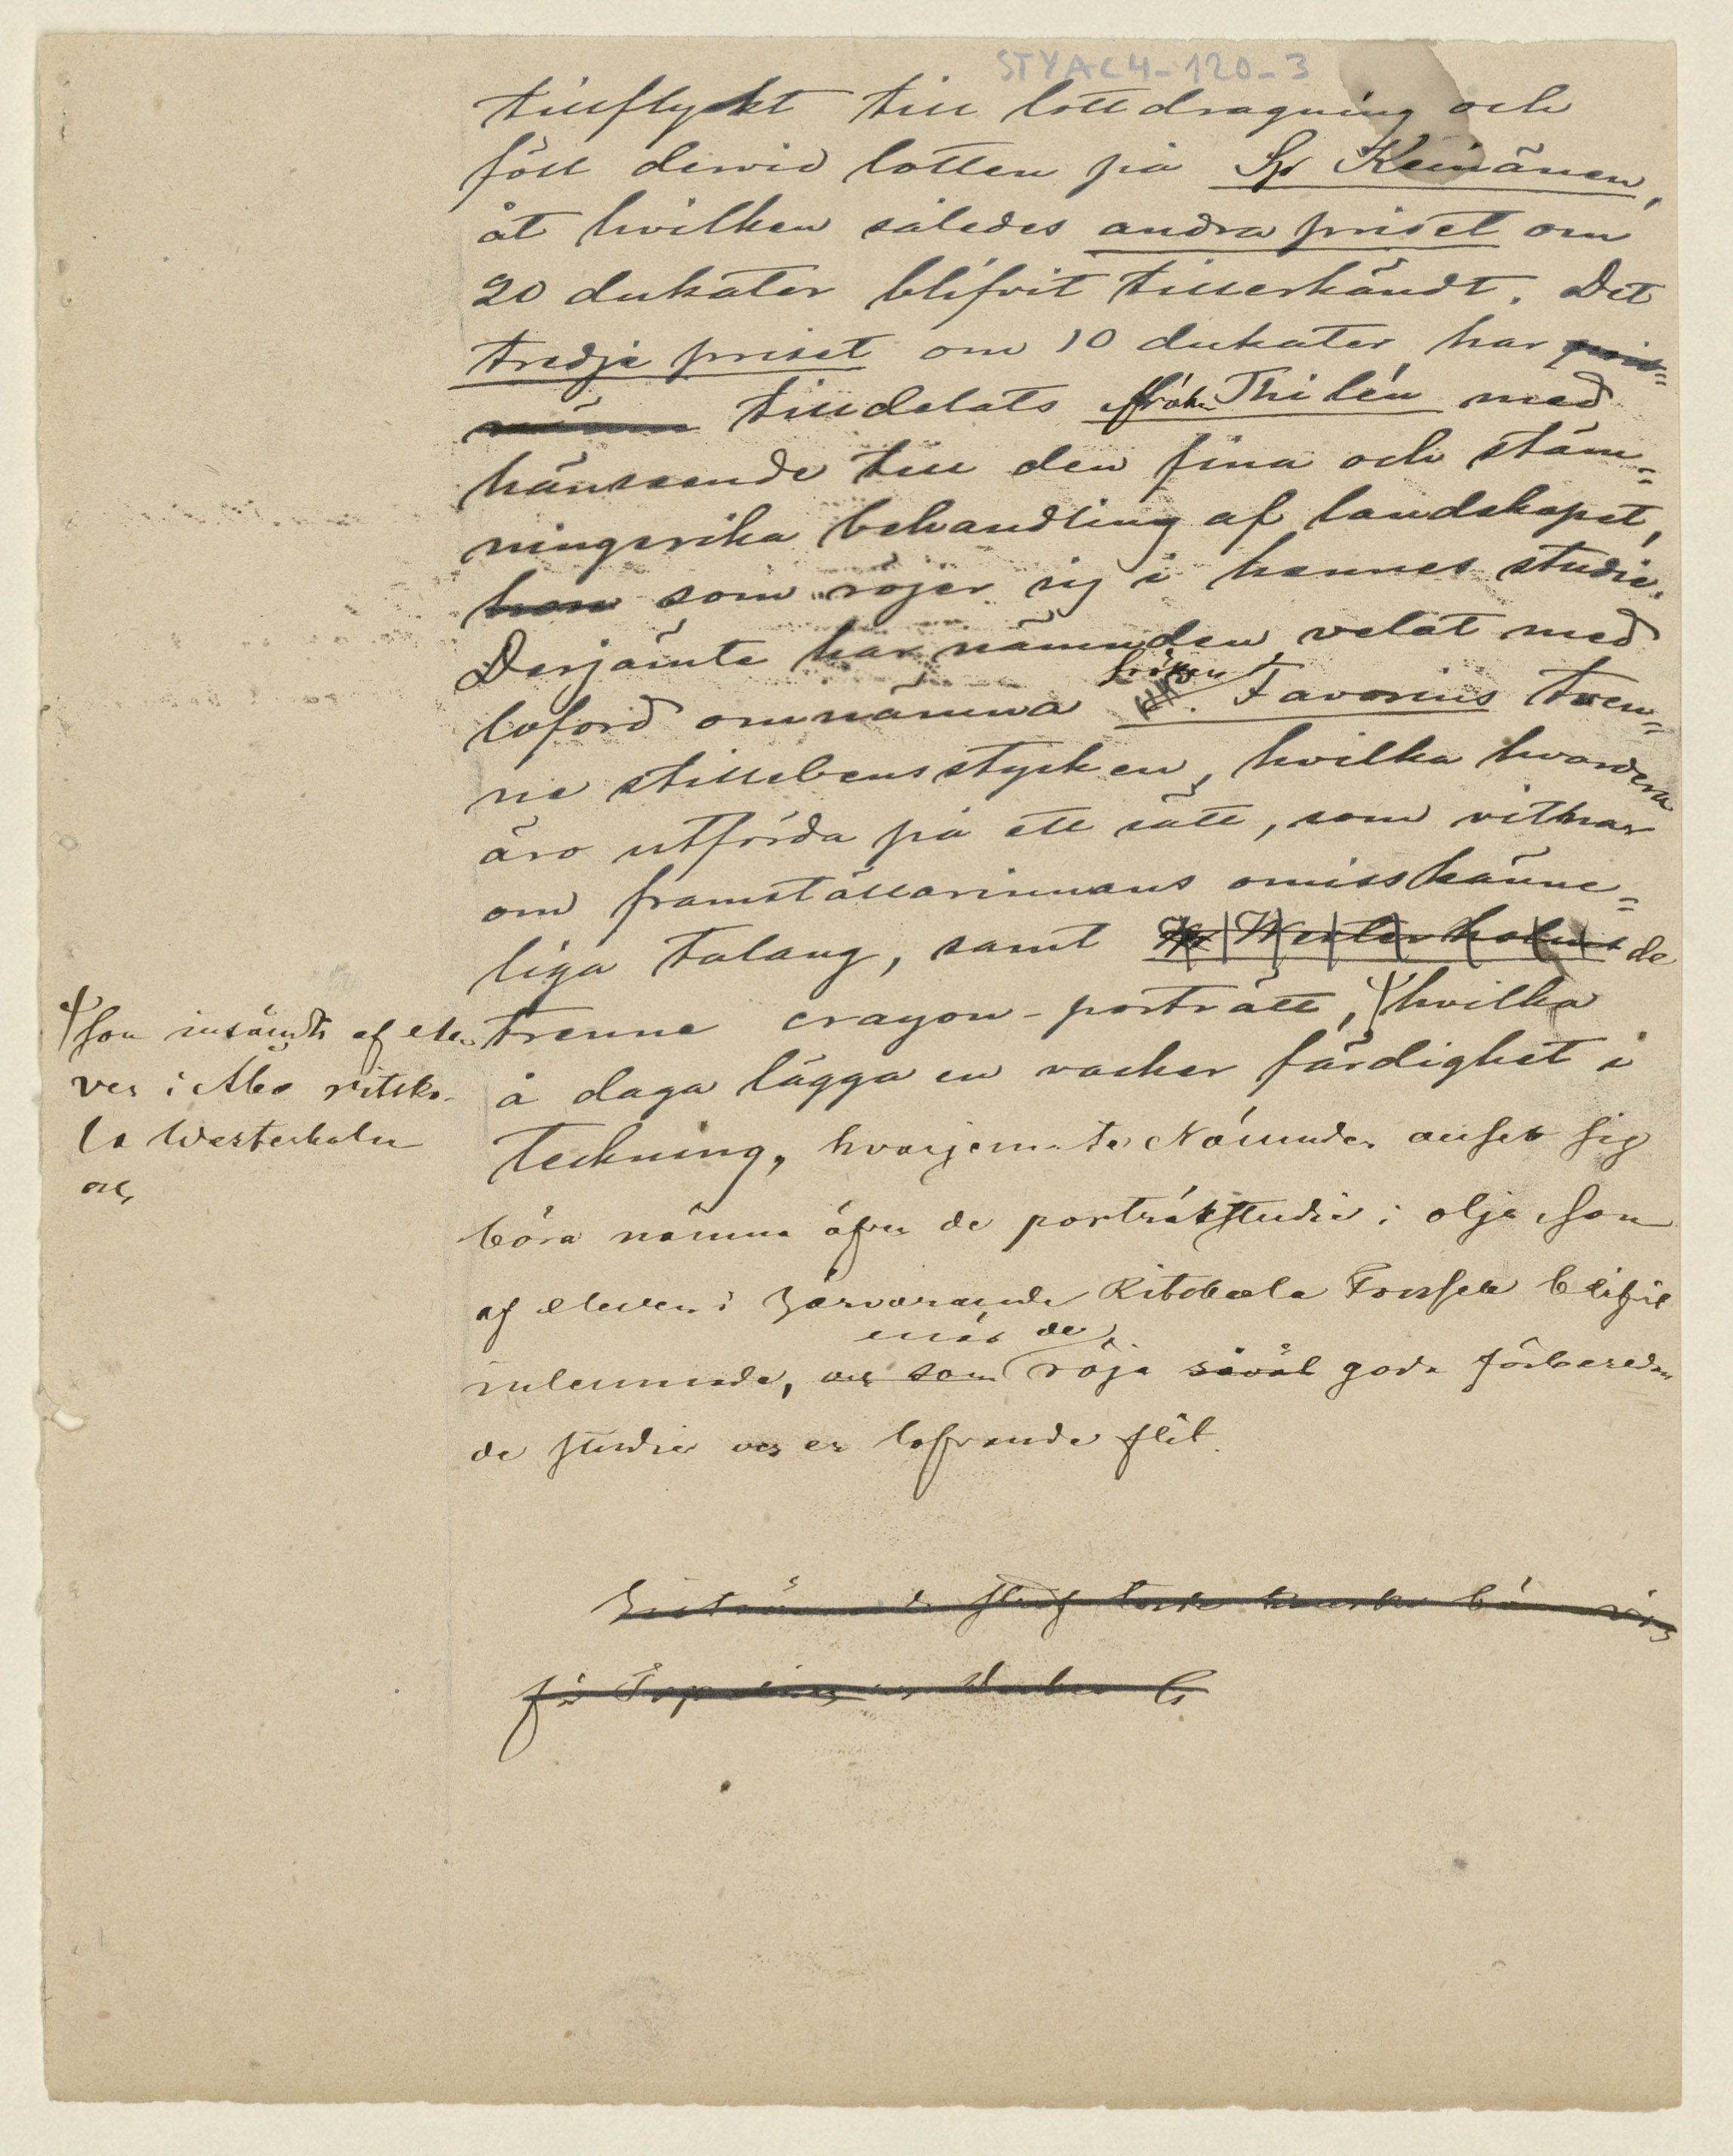 STYAC4-120-3
tillflykt till lottdragning och
föll dervid lotten på Hr Keinänen,
åt hvilken således andra priset om
20 dukater blifvit tillerkändt. Det
tredje priset om 10 dukater har pris=
tilldelats fröken Thilén med
hänseende till den fina och stäm=
ningsrika behandling af landskapet,
hon som röjer sig i hennes studie.
Derjämte har nämnden velat med
fröken
loford omnämna Favorins tven=
ne stillebensstycken, hvilka hvardera
äro utförda på ett sätt, som vittnar
om framställarinnans omisskänne=
liga talang, samt Hr Westerholms de
trenne crayon-porträtt, hvilka
som insändts af ele-
ves i Åbo ritsko-
la Westerholm
och
å daga lägga en vacker färdighet i
teckning, hvarjemte Nämnden anser sig
böra nämna äfven de porträttstudier i olja som
af eleven i härvarande Ritskola Forssell blifvit
de
inlemnade, och som röja såväl goda förbereden
de studier och en lofvande flit.